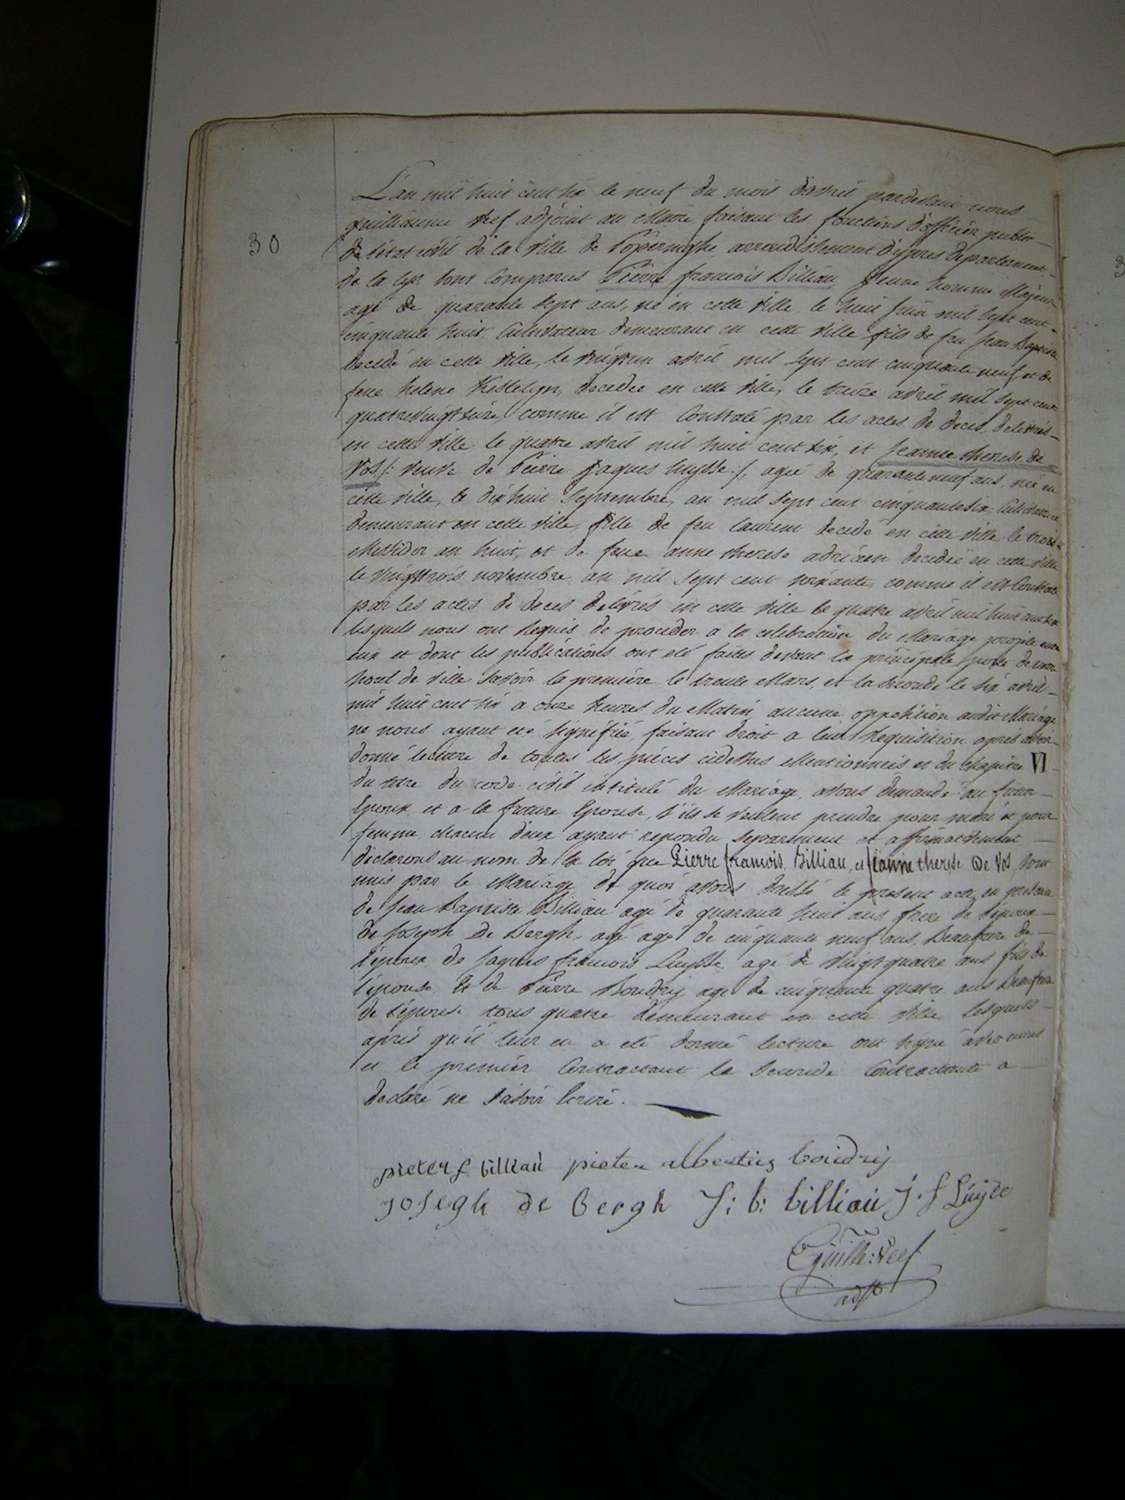 30
L'an mil huit cent six le neuf du mois d'avril pardevant nous
guillaume Veef adjoint au Maire faisant les fonctions d'officier public
de l'état civil de la ville de Poperinghe arrondissement d'ypres département
de la Lys sont comparus Pierre francois Billiau Jeune homme Majeur
agé de quarante sept ans, né en cette ville le huit Juin mil sept cent
cinquante huit Cultivateur demeurant en cette ville fils de feu Jean Baptiste
decedé en cette ville, le avril mil sept cent cinquante neuf et de
feue helene Kestelyn, decedée en cette ville, le treize avril mil sept cent
quatrevingttreize, comme il est Constaté par les actes de deces delivrés
en cette ville le quatre avril mil huit cent six, et Jeanne therese de
Vos /: veuve de Pierre Jaques Luysse :/, agée de quaranteneuf ans, née en
cette ville, le dixhuit Septembre, an mil sept cent cinquantesix Cultivatrice
demeurant en cette ville, fille de feu laurent decedé en cette ville le
Messidor an huit, et de feue anne therese adriaen decedée en cette ville
le vingttrois novembre an mil sept cent soixante comme il est Constaté
par les actes de deces delivrés en cette ville le quatre avril mil huit cent six
lesquels nous ont requis de proceder a la celebration du Mariage projeté entre
eux et dont les publications ont été faites devant la principale porte de notre
hotel de ville Savoir la première le trente Mars, et la seconde le six avril
mil huit cent six a onze heures du Matin aucune opposition audit Mariage
ne nous ayant été signifiée, faisant droit a leur Requisition après avoir
donné lecture de toutes les pièces cidessus Mentionnées et du chapitre VI
du titre du code civil intitulé du Mariage, avons demandé au futur
Epoux et a la future Epouse, s'ils se veulent prendre pour mari et pour
femme chacun d'eux ayant repondu separement et affirmativement
declarons au nom de la loi que Pierre francois Billiau, et Jeanne therese De Vos, sont
unis par le Mariage de quoi avons dressé le present acte en presence
de Jean Baptiste Billiau agé de quarante huit ans frere de l'epoux
de Joseph De Bergh agé agé de cinquante neuf ans Beaufrere de
l'epoux de Jaques francois Luysse agé de vingtquatre ans fils de
l'epouse et de Pierre Boudry agé de cinquante quatre ans Beaufrere
de l'epouse tous quatre demeurant en cette ville lesquels
après qu'il leur en a été donné lecture ont signé avec nous
et le premier Contractant la Seconde Contractante a
declaré ne savoir Ecrire.
pieter f billiau pieter albertus boudrij
josegh de Bergh J: b: billiau J. f Luijse
Guille: Veef
adjt